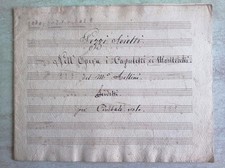 Pezzi Scielti
Nell' Opera i Capuletti ei Montecchi
del M.° Bellini
Ridotti
per Cembalo solo